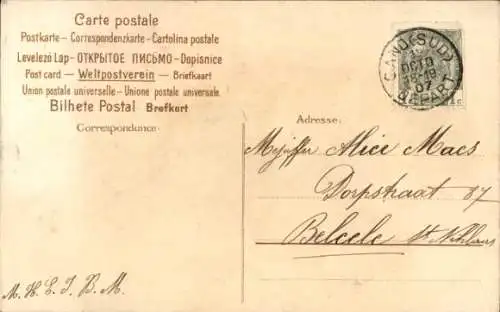 Carte postale
Postkarte - Correspondenzkarte - Cartolina postale
Levelező Lap - ОТКРЫТОЕ ПИСЬМО - Dopisnice
Post card — Weltpostverein — Briefkaart
Union postale universelle - Unione postale universale.
Bilhete Postal Brefkort
Correspondance.
GAND (SUD)
OCTO
18-19
07
DEPART
1 c
Adresse:
Mejuffer Alice Maes
Dorpstraat 87
Belcele St Niklaas
M. H. E. J. B. M.